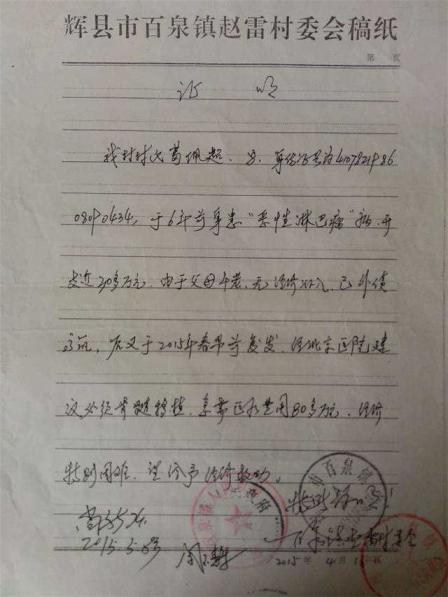 辉县市百泉镇赵雷村委会稿纸
第 页
证 明
我村村民 佩超、男、身份证号为4107821986
0890434,于6年前身患“恶性淋巴瘤”病,开
支近20多万元,由于父母年老,无经济收入,已外债
高筑,后又于2015年春节前复发,经北京医院建
议必须骨髓移植,亲 医药费用30多万元,经济
特别困难,望给予经济救助。
特此证明
2015.5.
百泉镇 村委会
2015年 4月 1 日